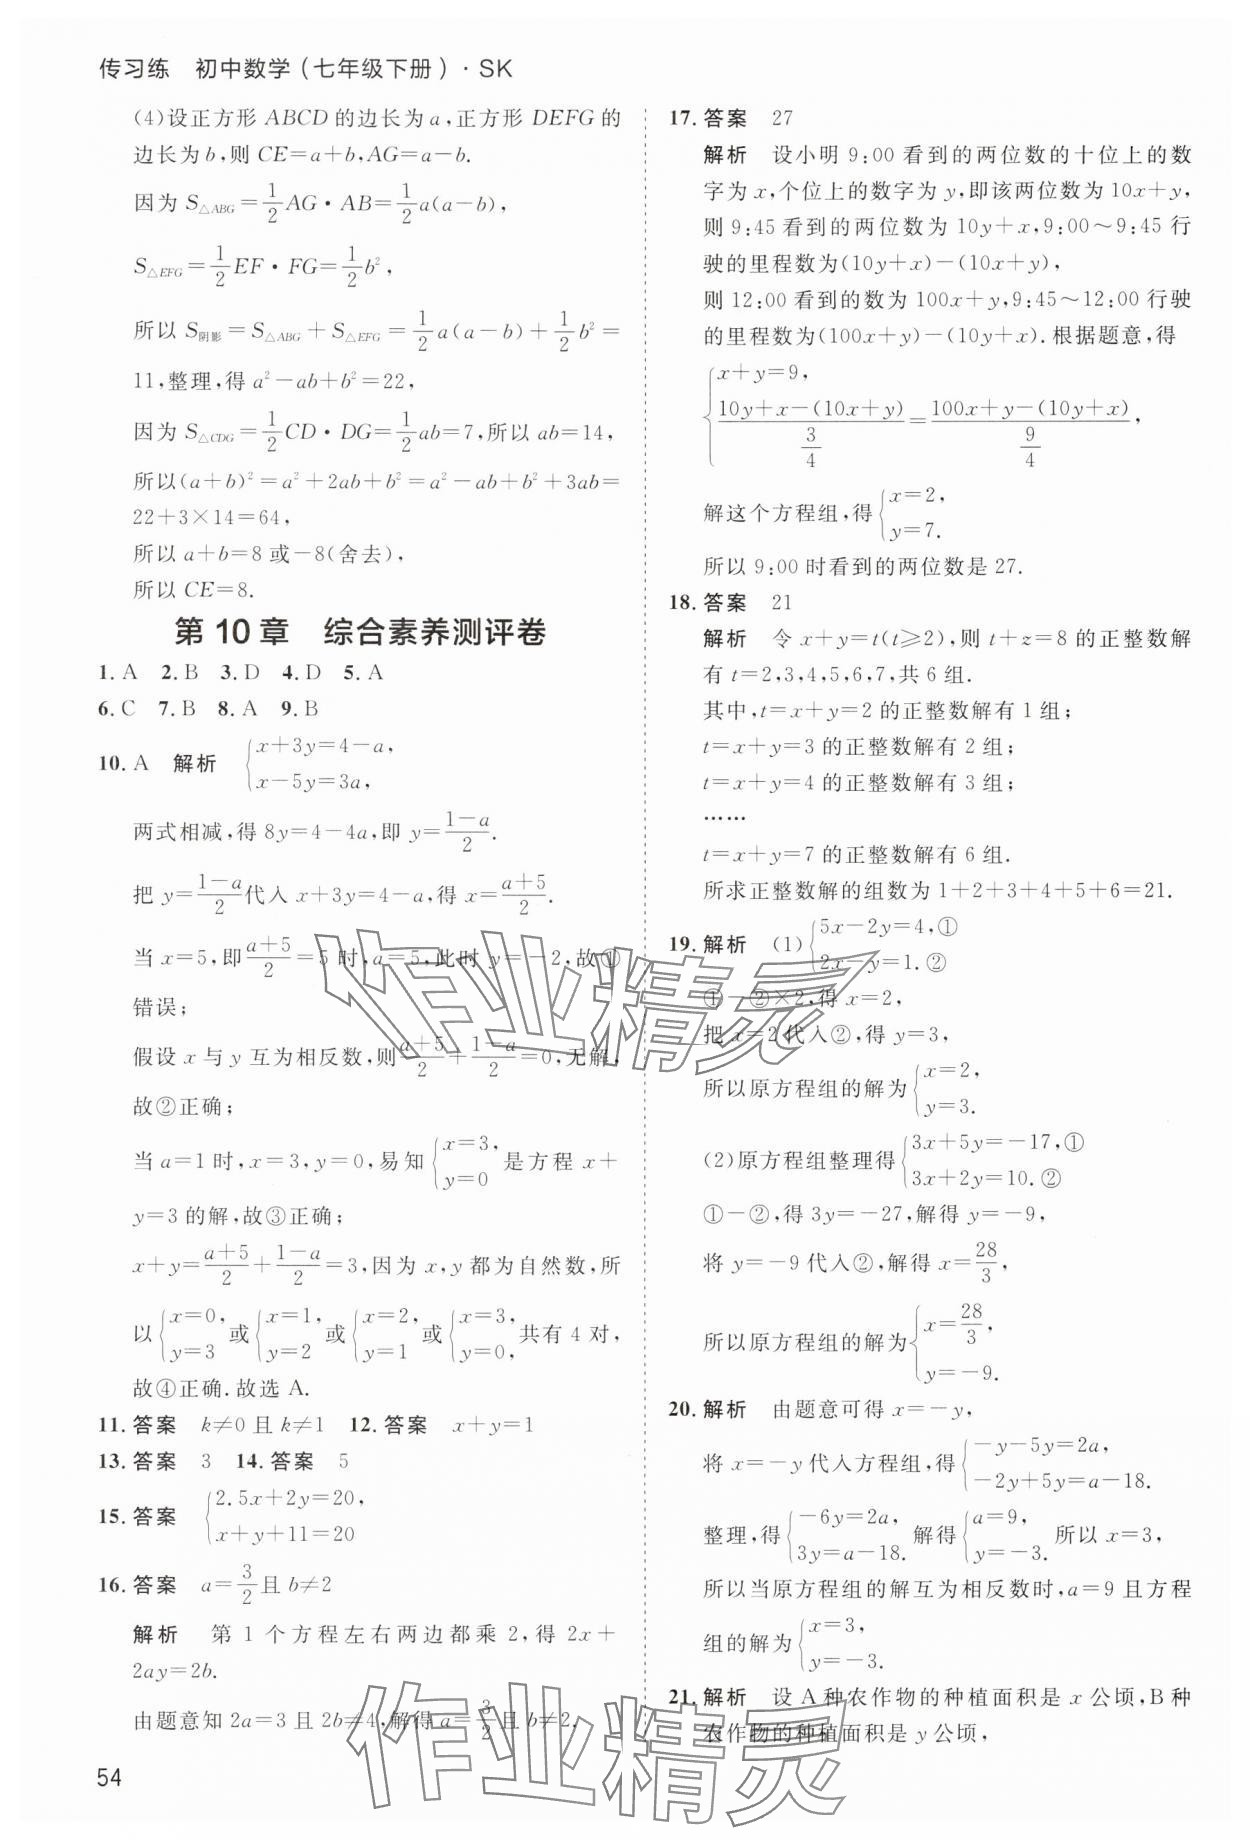 传习练 初中数学(七年级下册)·SK
(4)设正方形 ABCD 的边长为 a,正方形 DEFG 的
边长为 b,则 CE=a+b,AG=a-b.
因为 S△ABG=1/2 AG·AB=1/2 a(a-b),
S△EFG=1/2 EF·FG=1/2 b²,
所以 S阴影=S△ABG+S△EFG=1/2 a(a-b)+1/2 b²=
11,整理,得 a²-ab+b²=22,
因为 S△CDG=1/2 CD·DG=1/2 ab=7,所以 ab=14,
所以(a+b)²=a²+2ab+b²=a²-ab+b²+3ab=
22+3×14=64,
所以 a+b=8 或-8(舍去),
所以 CE=8.
第10章 综合素养测评卷
1. A 2. B 3. D 4. D 5. A
6. C 7. B 8. A 9. B
10. A 解析 {x+3y=4-a,
x-5y=3a,
两式相减,得 8y=4-4a,即 y=(1-a)/2.
把 y=(1-a)/2 代入 x+3y=4-a,得 x=(a+5)/2.
当 x=5,即(a+5)/2=5 时,a=5,此时 y=-2,故①
错误;
假设 x 与 y 互为相反数,则(a+5)/2+(1-a)/2=0,无解,
故②正确;
当 a=1 时,x=3,y=0,易知{x=3, y=0 是方程 x+
y=3 的解,故③正确;
x+y=(a+5)/2+(1-a)/2=3,因为 x,y 都为自然数,所
以{x=0, y=3 或{x=1, y=2 或{x=2, y=1 或{x=3, y=0, 共有 4 对,
故④正确.故选 A.
11. 答案 k≠0 且 k≠1 12. 答案 x+y=1
13. 答案 3 14. 答案 5
15. 答案 {2.5x+2y=20,
x+y+11=20
16. 答案 a=3/2 且 b≠2
解析 第 1 个方程左右两边都乘 2,得 2x+
2ay=2b.
由题意知 2a=3 且 2b≠4,解得 a=3/2 且 b≠2.
54
17. 答案 27
解析 设小明 9:00 看到的两位数的十位上的数
字为 x,个位上的数字为 y,即该两位数为 10x+y,
则 9:45 看到的两位数为 10y+x,9:00~9:45 行
驶的里程数为(10y+x)-(10x+y),
则 12:00 看到的数为 100x+y,9:45~12:00 行驶
的里程数为(100x+y)-(10y+x).根据题意,得
{x+y=9,
(10y+x-(10x+y))/(3/4)=(100x+y-(10y+x))/(9/4),
解这个方程组,得{x=2, y=7.
所以 9:00 时看到的两位数是 27.
18. 答案 21
解析 令 x+y=t(t≥2),则 t+z=8 的正整数解
有 t=2,3,4,5,6,7,共 6 组.
其中,t=x+y=2 的正整数解有 1 组;
t=x+y=3 的正整数解有 2 组;
t=x+y=4 的正整数解有 3 组;
……
t=x+y=7 的正整数解有 6 组.
所求正整数解的组数为 1+2+3+4+5+6=21.
19. 解析 (1){5x-2y=4,①
2x-y=1.②
①-②×2,得 x=2,
把 x=2 代入②,得 y=3,
所以原方程组的解为{x=2, y=3.
(2)原方程组整理得{3x+5y=-17,①
3x+2y=10.②
①-②,得 3y=-27,解得 y=-9,
将 y=-9 代入②,解得 x=28/3,
所以原方程组的解为{x=28/3, y=-9.
20. 解析 由题意可得 x=-y,
将 x=-y 代入方程组,得{-y-5y=2a, -2y+5y=a-18.
整理,得{-6y=2a, 3y=a-18. 解得{a=9, y=-3. 所以 x=3,
所以当原方程组的解互为相反数时,a=9 且方程
组的解为{x=3, y=-3.
21. 解析 设 A 种农作物的种植面积是 x 公顷,B 种
农作物的种植面积是 y 公顷,
作业精灵
作业精灵